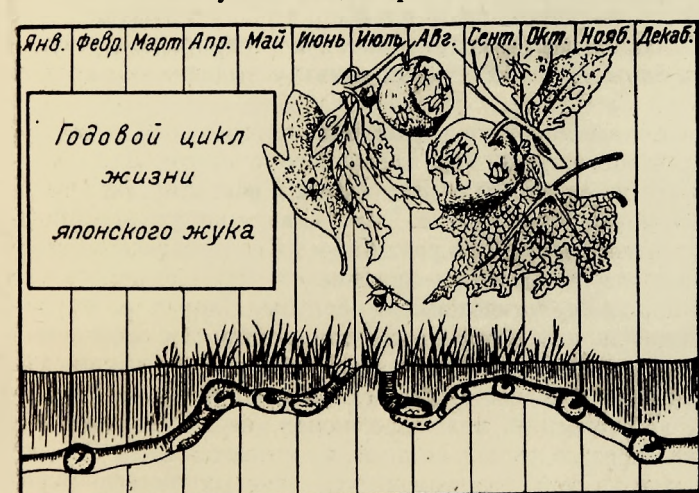 Янв. Февр. Март Апр. Май Июнь Июль Авг. Сент. Окт. Нояб. Декаб.
Годовой цикл
жизни
японского жука